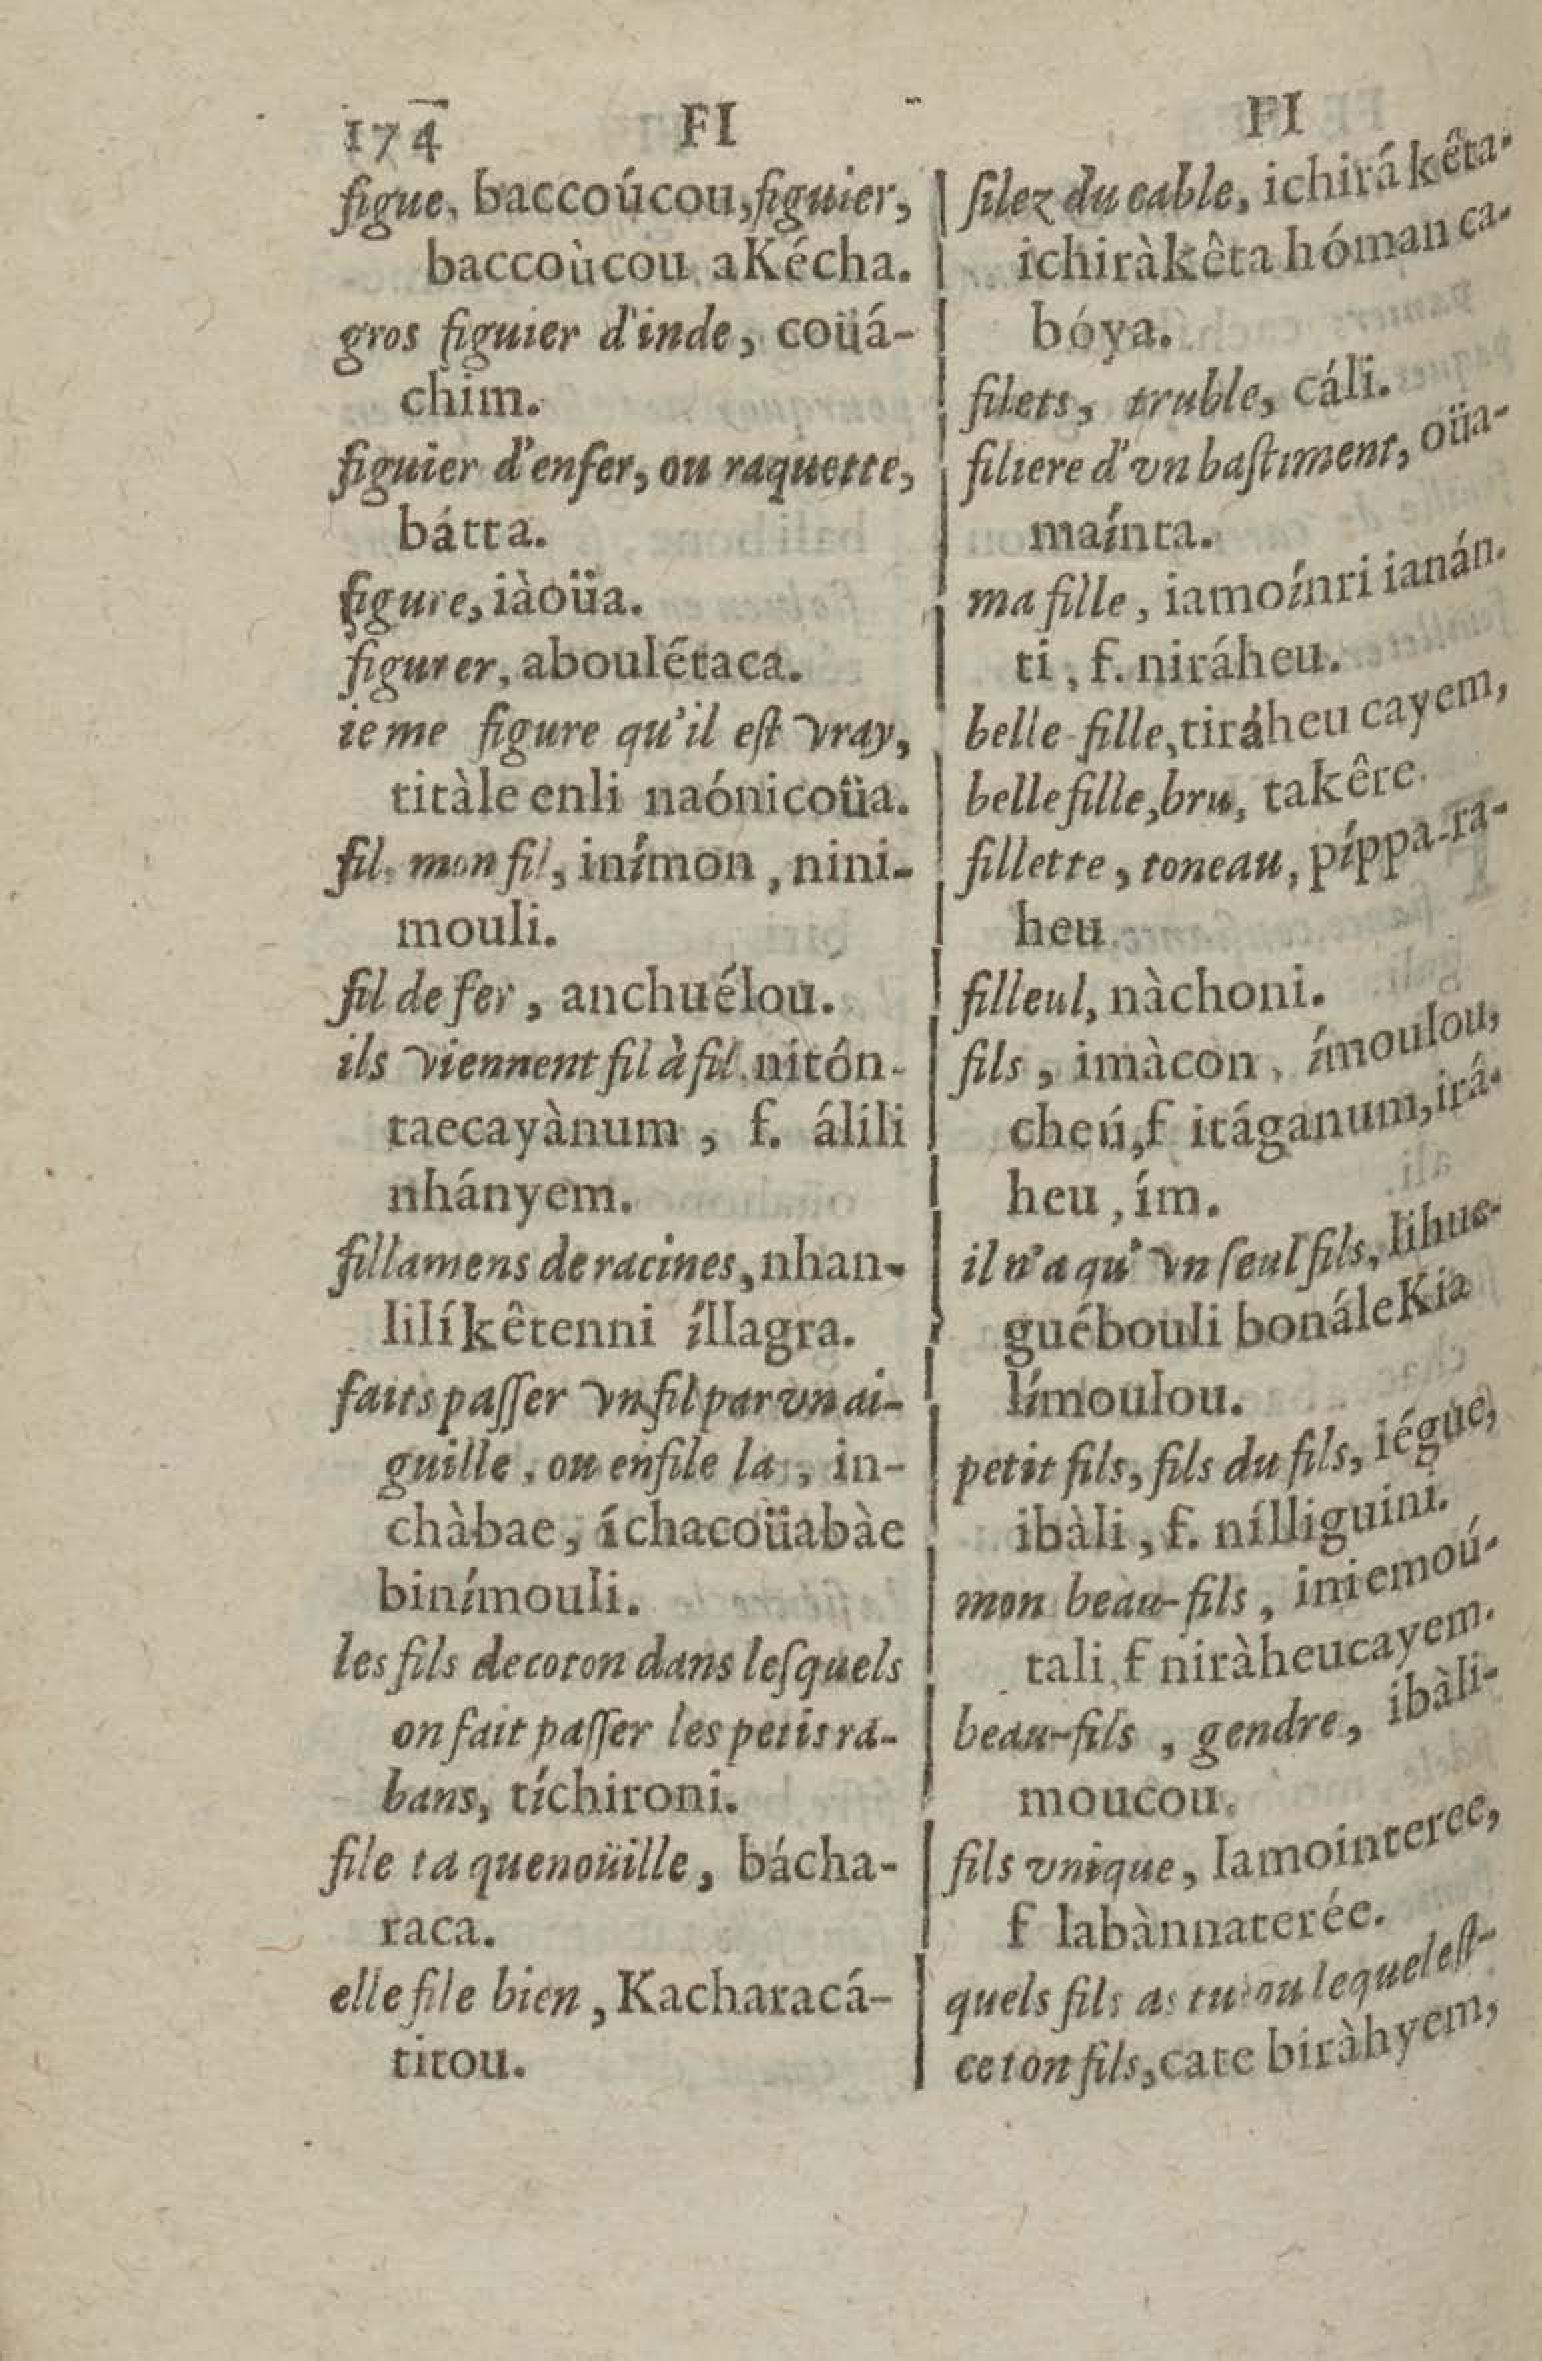 174 FI FI
figue, baccoúcou, figuier,
baccoùcou aKécha.
gros figuier d'inde, coüá-
chim.
figuier d'enfer, ou raquette,
bátta.
figure, iàoüa.
figurer, aboulétaca.
ie me figure qu'il eſt vray,
titàle enli naónicoüa.
fil, mon fil, inímon, nini-
mouli.
fil de fer, anchuélou.
ils viennent fil à fil, nitón-
taecayànum, f. álili
nhányem.
fillamens de racines, nhan-
lilíkêtenni íllagra.
faits paſſer vn fil par vn ai-
guille, ou enfile la, in-
chàbae, íchacoüabàe
binímouli.
les fils de coton dans leſquels
on fait paſſer les petis ra-
bans, tíchironi.
file ta quenoüille, bácha-
raca.
elle file bien, Kacharacá-
titou.
filez du cable, ichirákêta-
ichiràkêta hóman ca-
bóya.
filets, truble, cáli.
filiere d'vn baſtiment, oüa-
maínta.
ma fille, iamoínri ianán-
ti, f. niráheu.
belle-fille, tiráheu cayem,
belle fille, bru, takêre.
fillette, toneau, píppa-ra-
heu
filleul, nàchoni.
fils, imàcon, ímoulou,
cheú, f itáganum, irá-
heu, ím.
il n'a qu' vn ſeul fils, lihue-
guébouli bonáleKia
límoulou.
petit fils, fils du fils, iégue,
ibàli, f. nílliguini.
mon beau-fils, iniemoú-
tali, f niràheucayem.
beau-fils, gendre, ibàli-
moucou.
fils vnique, lamointeree,
f labànnaterée.
quels fils as tu ou lequel eſt-
ce ton fils, cate biràhyem,